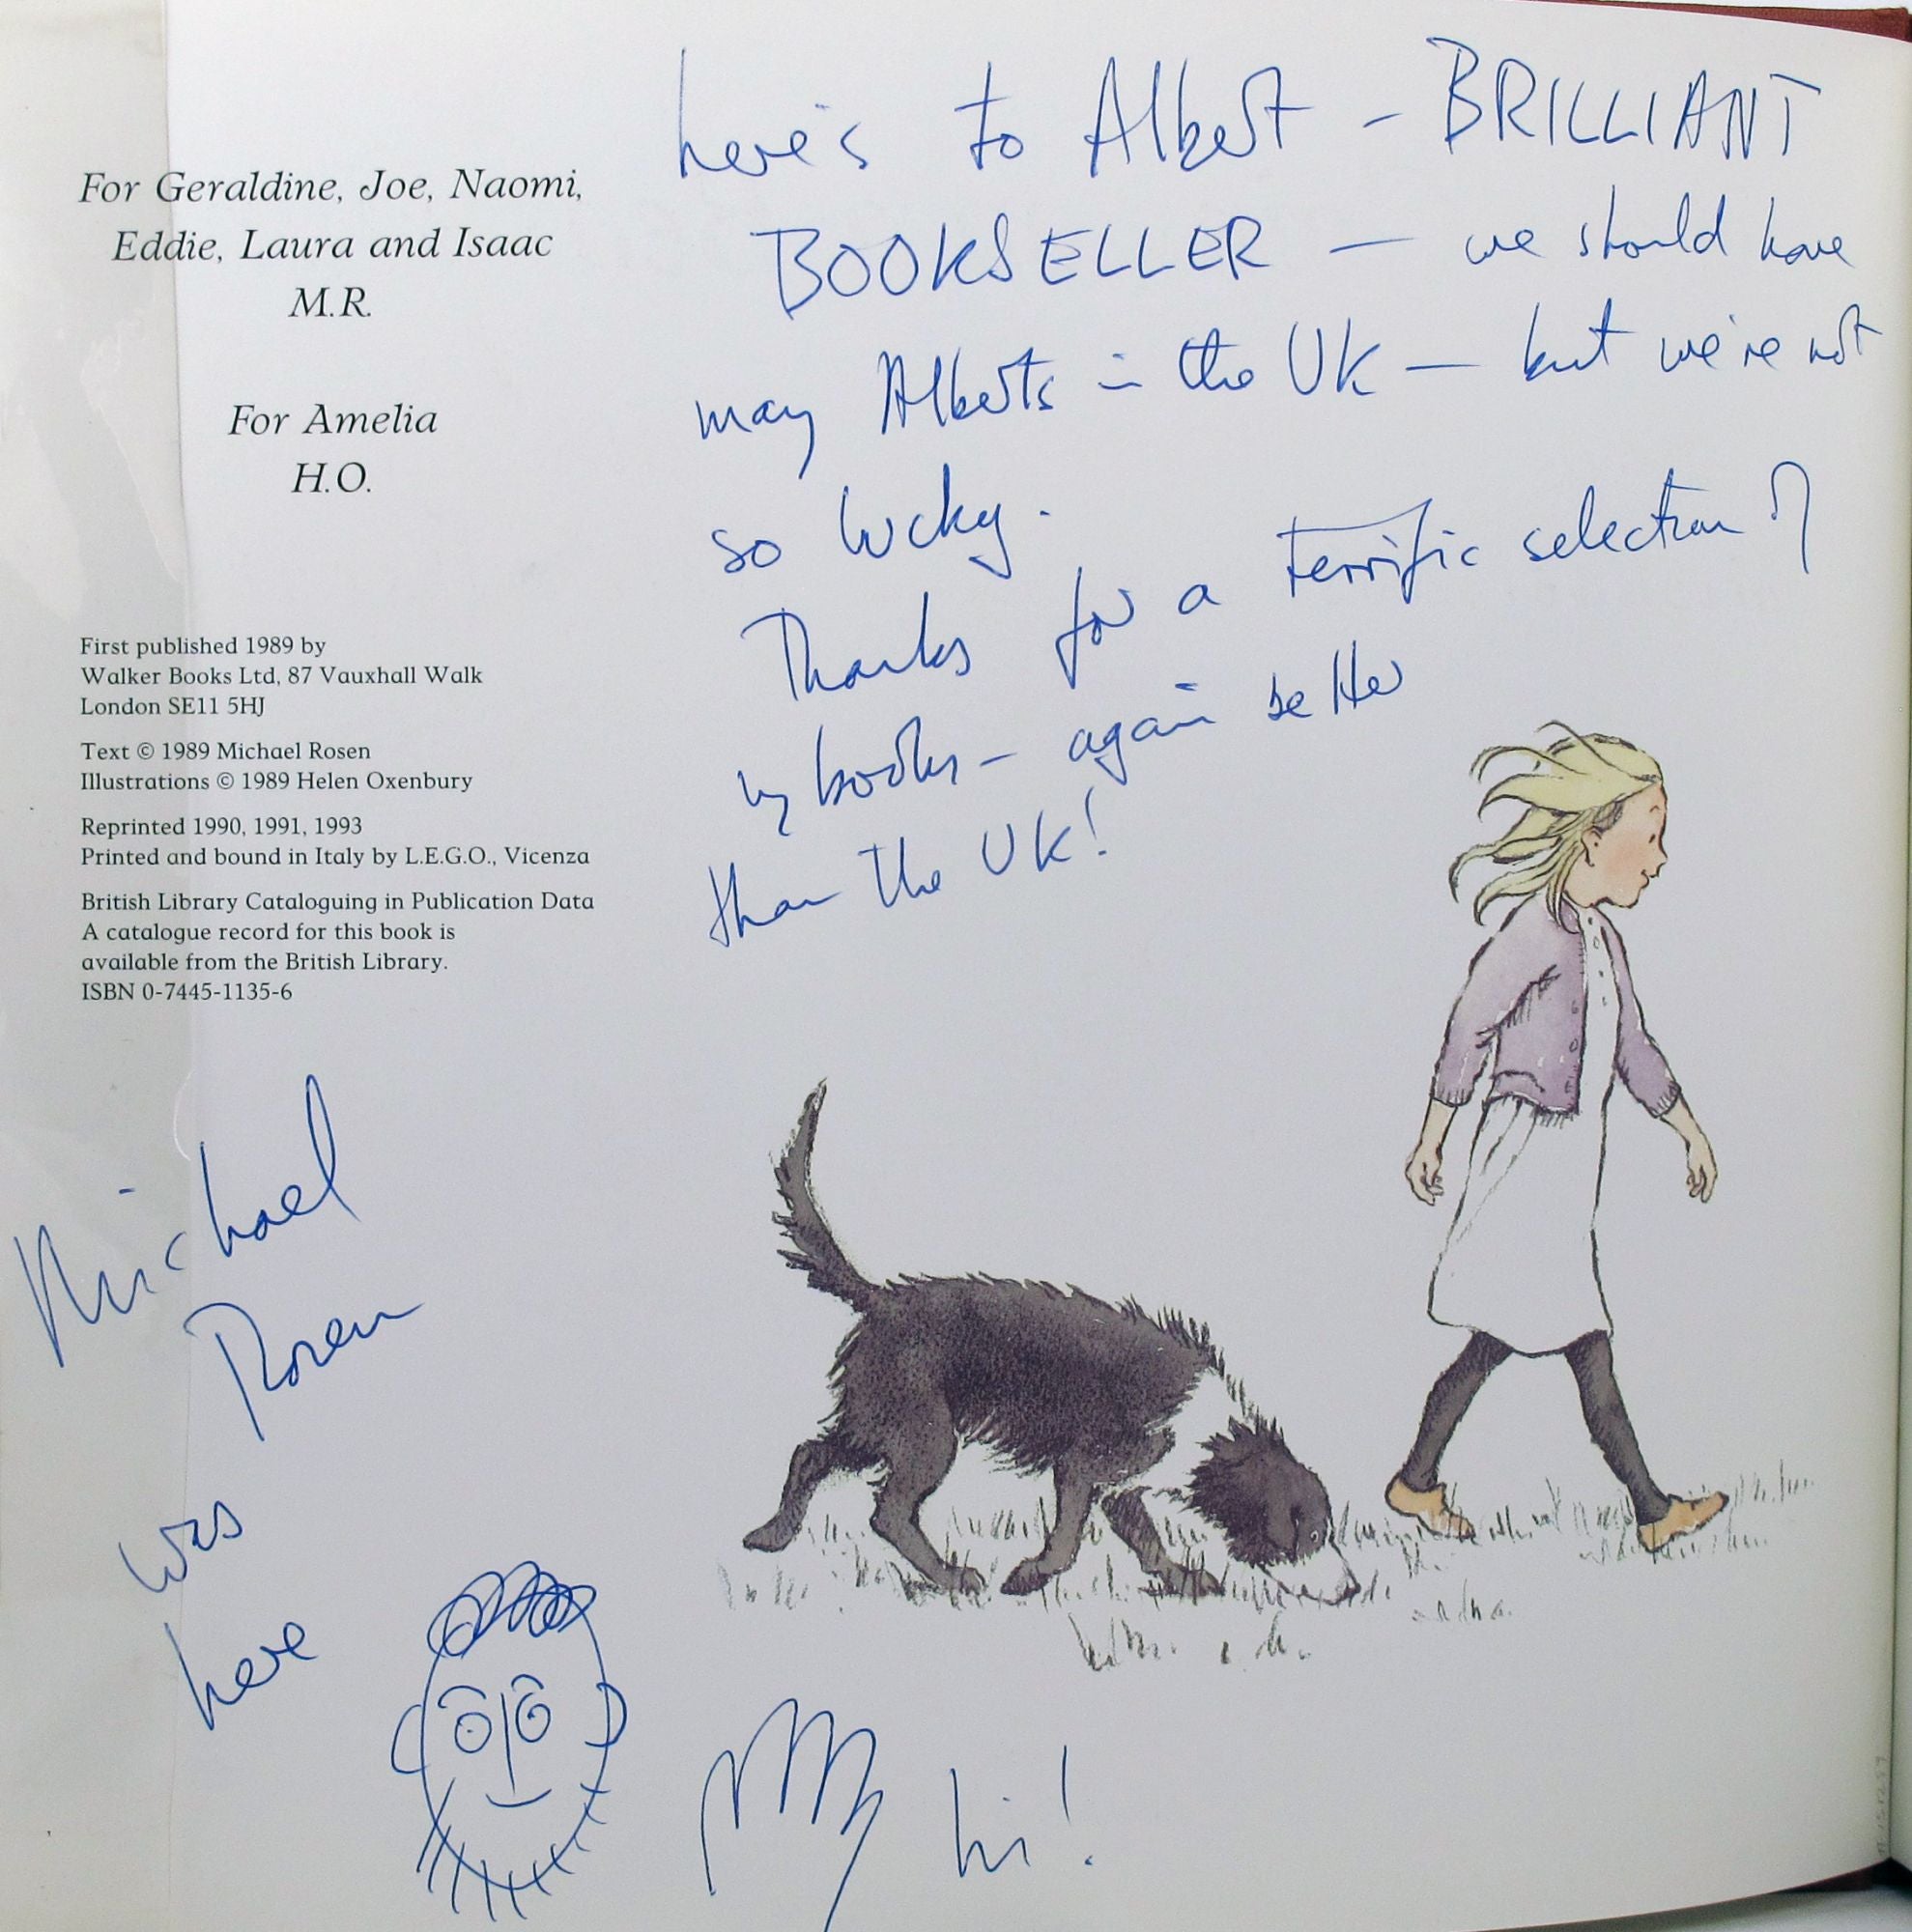 For Geraldine, Joe, Naomi,
Eddie, Laura and Isaac
M.R.
For Amelia
H.O.
First published 1989 by
Walker Books Ltd, 87 Vauxhall Walk
London SE11 5HJ
Text © 1989 Michael Rosen
Illustrations © 1989 Helen Oxenbury
Reprinted 1990, 1991, 1993
Printed and bound in Italy by L.E.G.O., Vicenza
British Library Cataloguing in Publication Data
A catalogue record for this book is
available from the British Library.
ISBN 0-7445-1135-6
here's to Albert – BRILLIANT
BOOKSELLER — we should have
may Alberts in the UK — but we're not
so lucky.
Thanks for a terrific selection of
my books – again better
than the UK!
Michael
Rosen
was
here
hi!